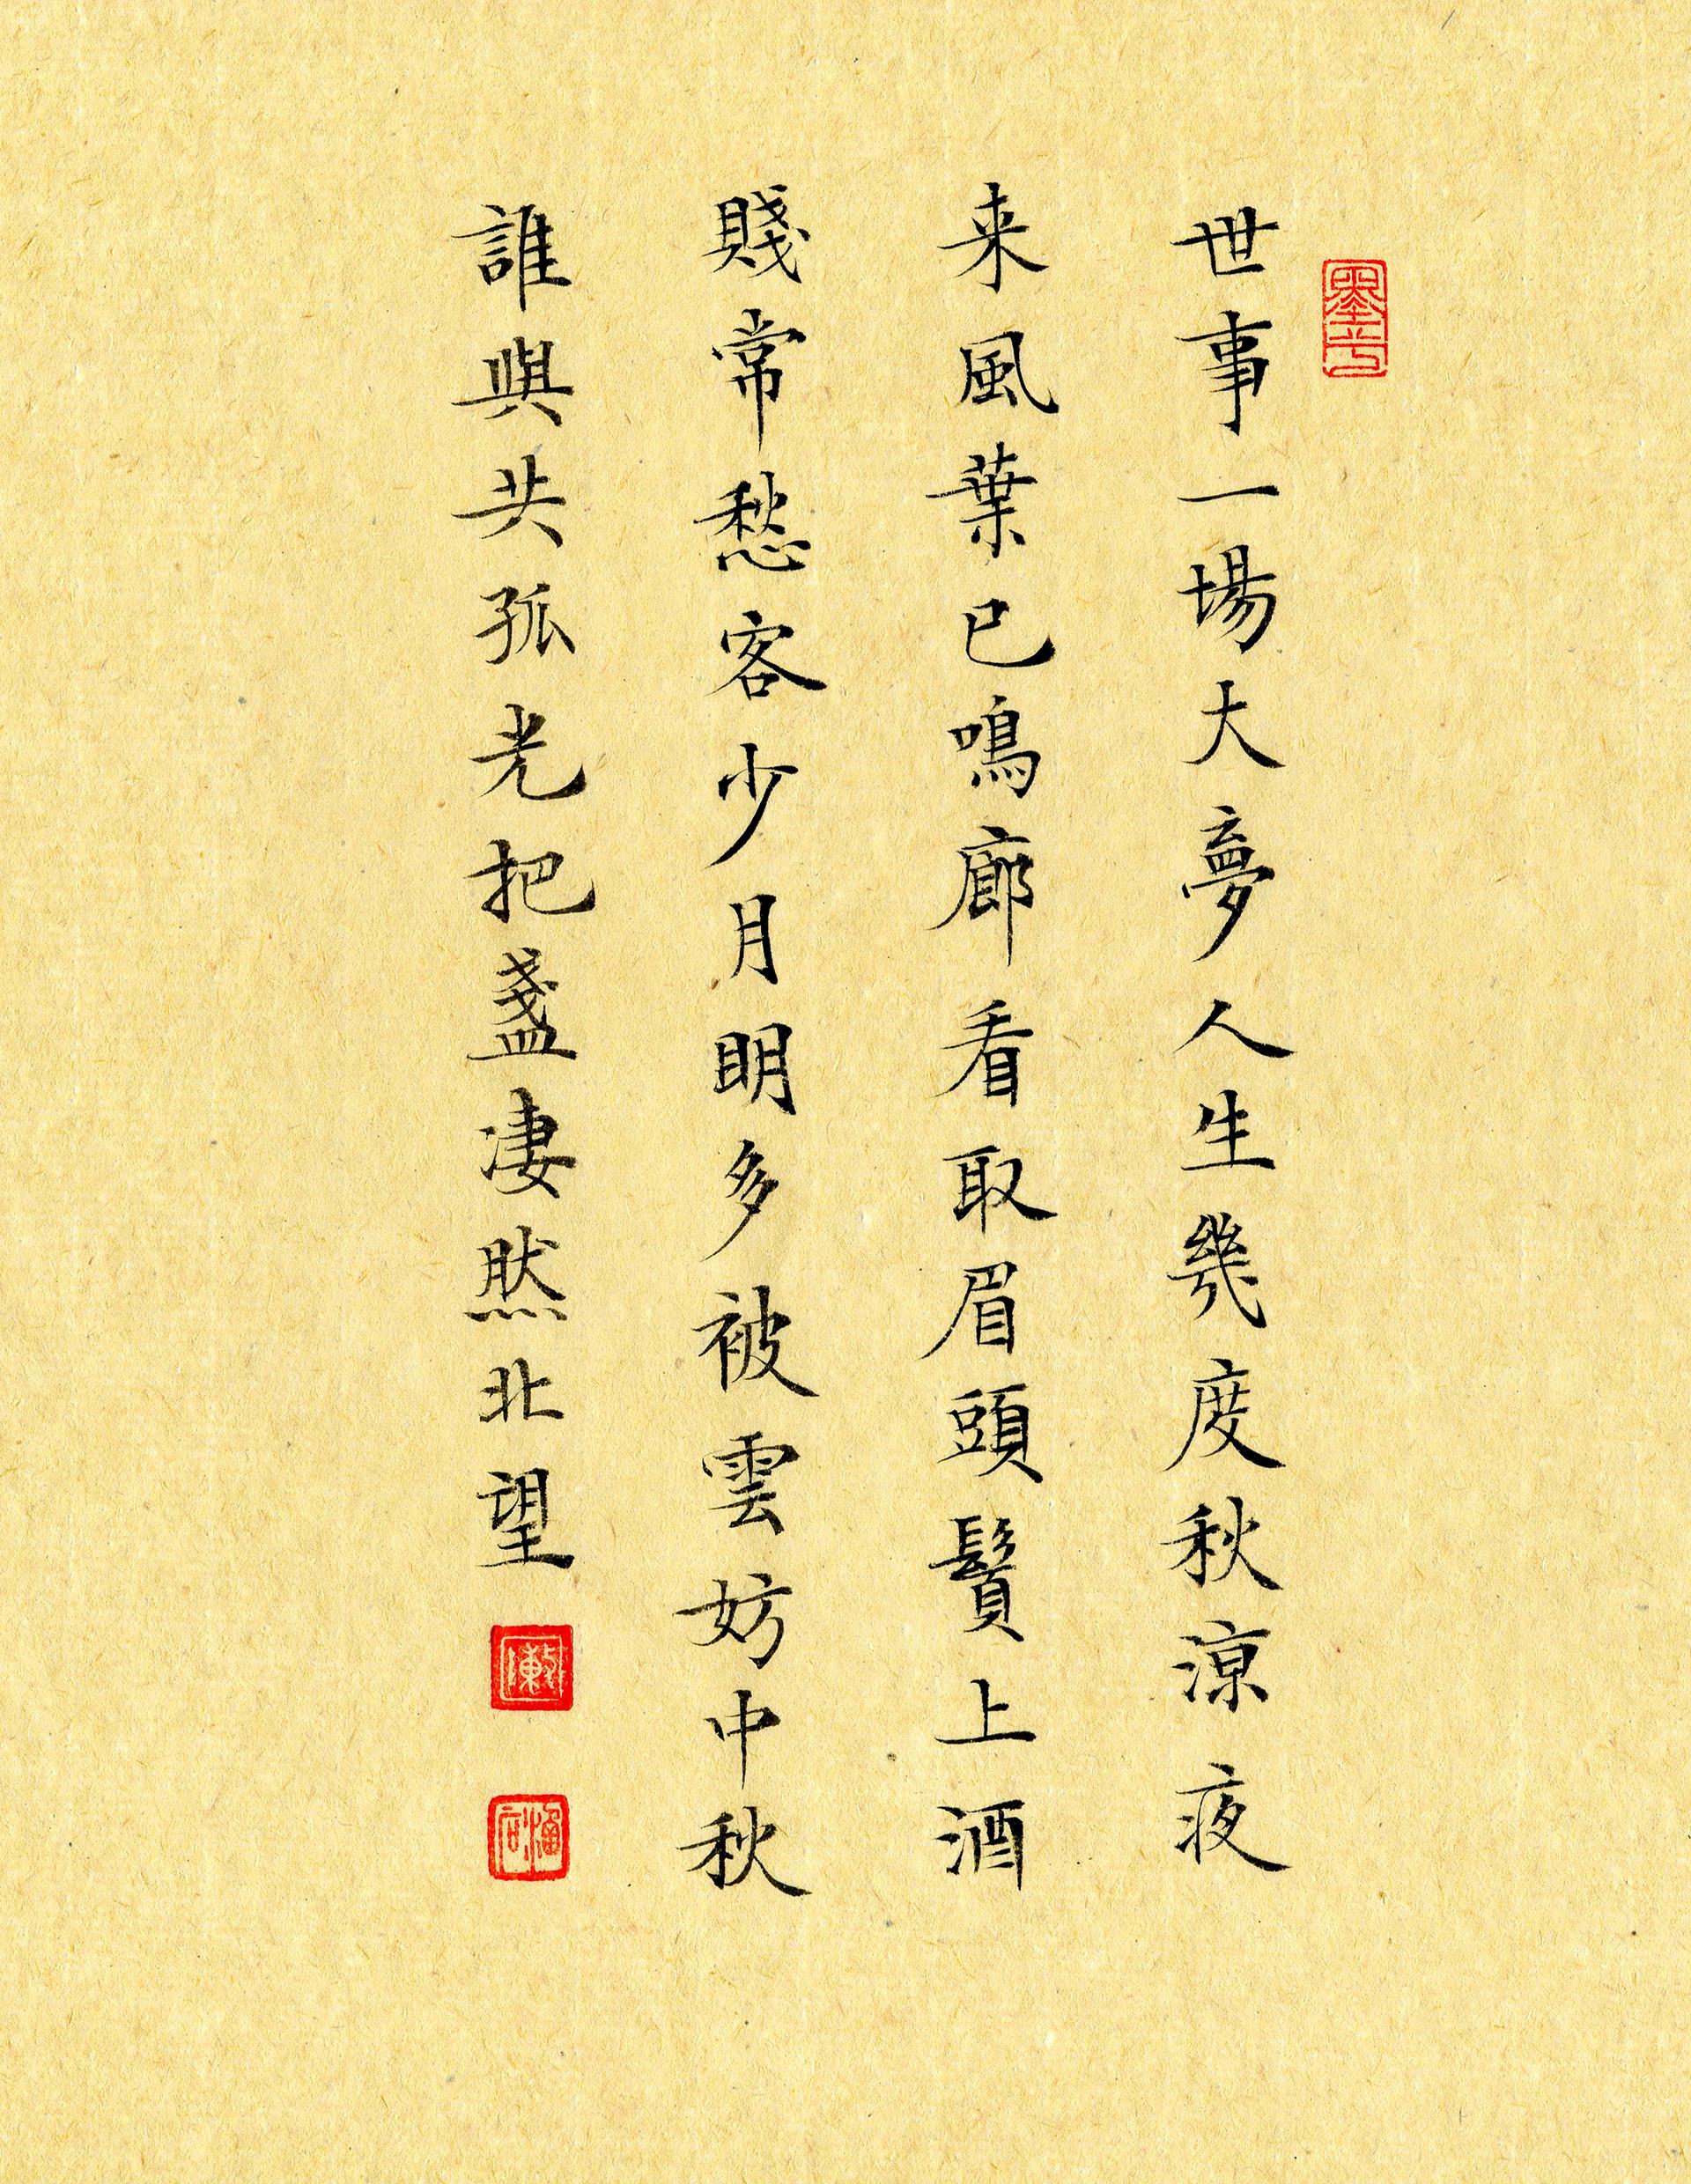 世事一場大夢人生幾度秋涼夜
来風葉已鳴廊看取眉頭鬢上酒
賤常愁客少月明多被雲妨中秋
誰與共孤光把盞凄然北望